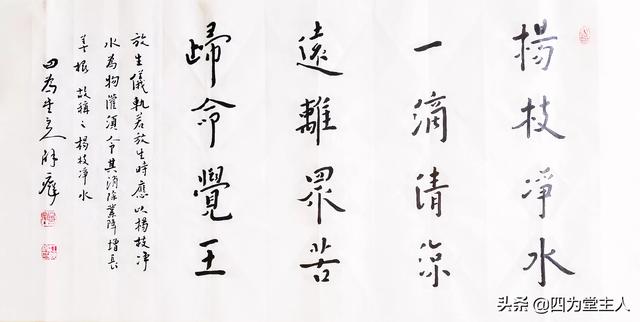 楊枝淨水
一滴清涼
遠離眾苦
歸命覺王
放生儀軌若放生時應以楊枝淨
水為物灌須令其消除業障增長
善根故稱之楊枝净水
四為堂主人
头条 @四为堂主人